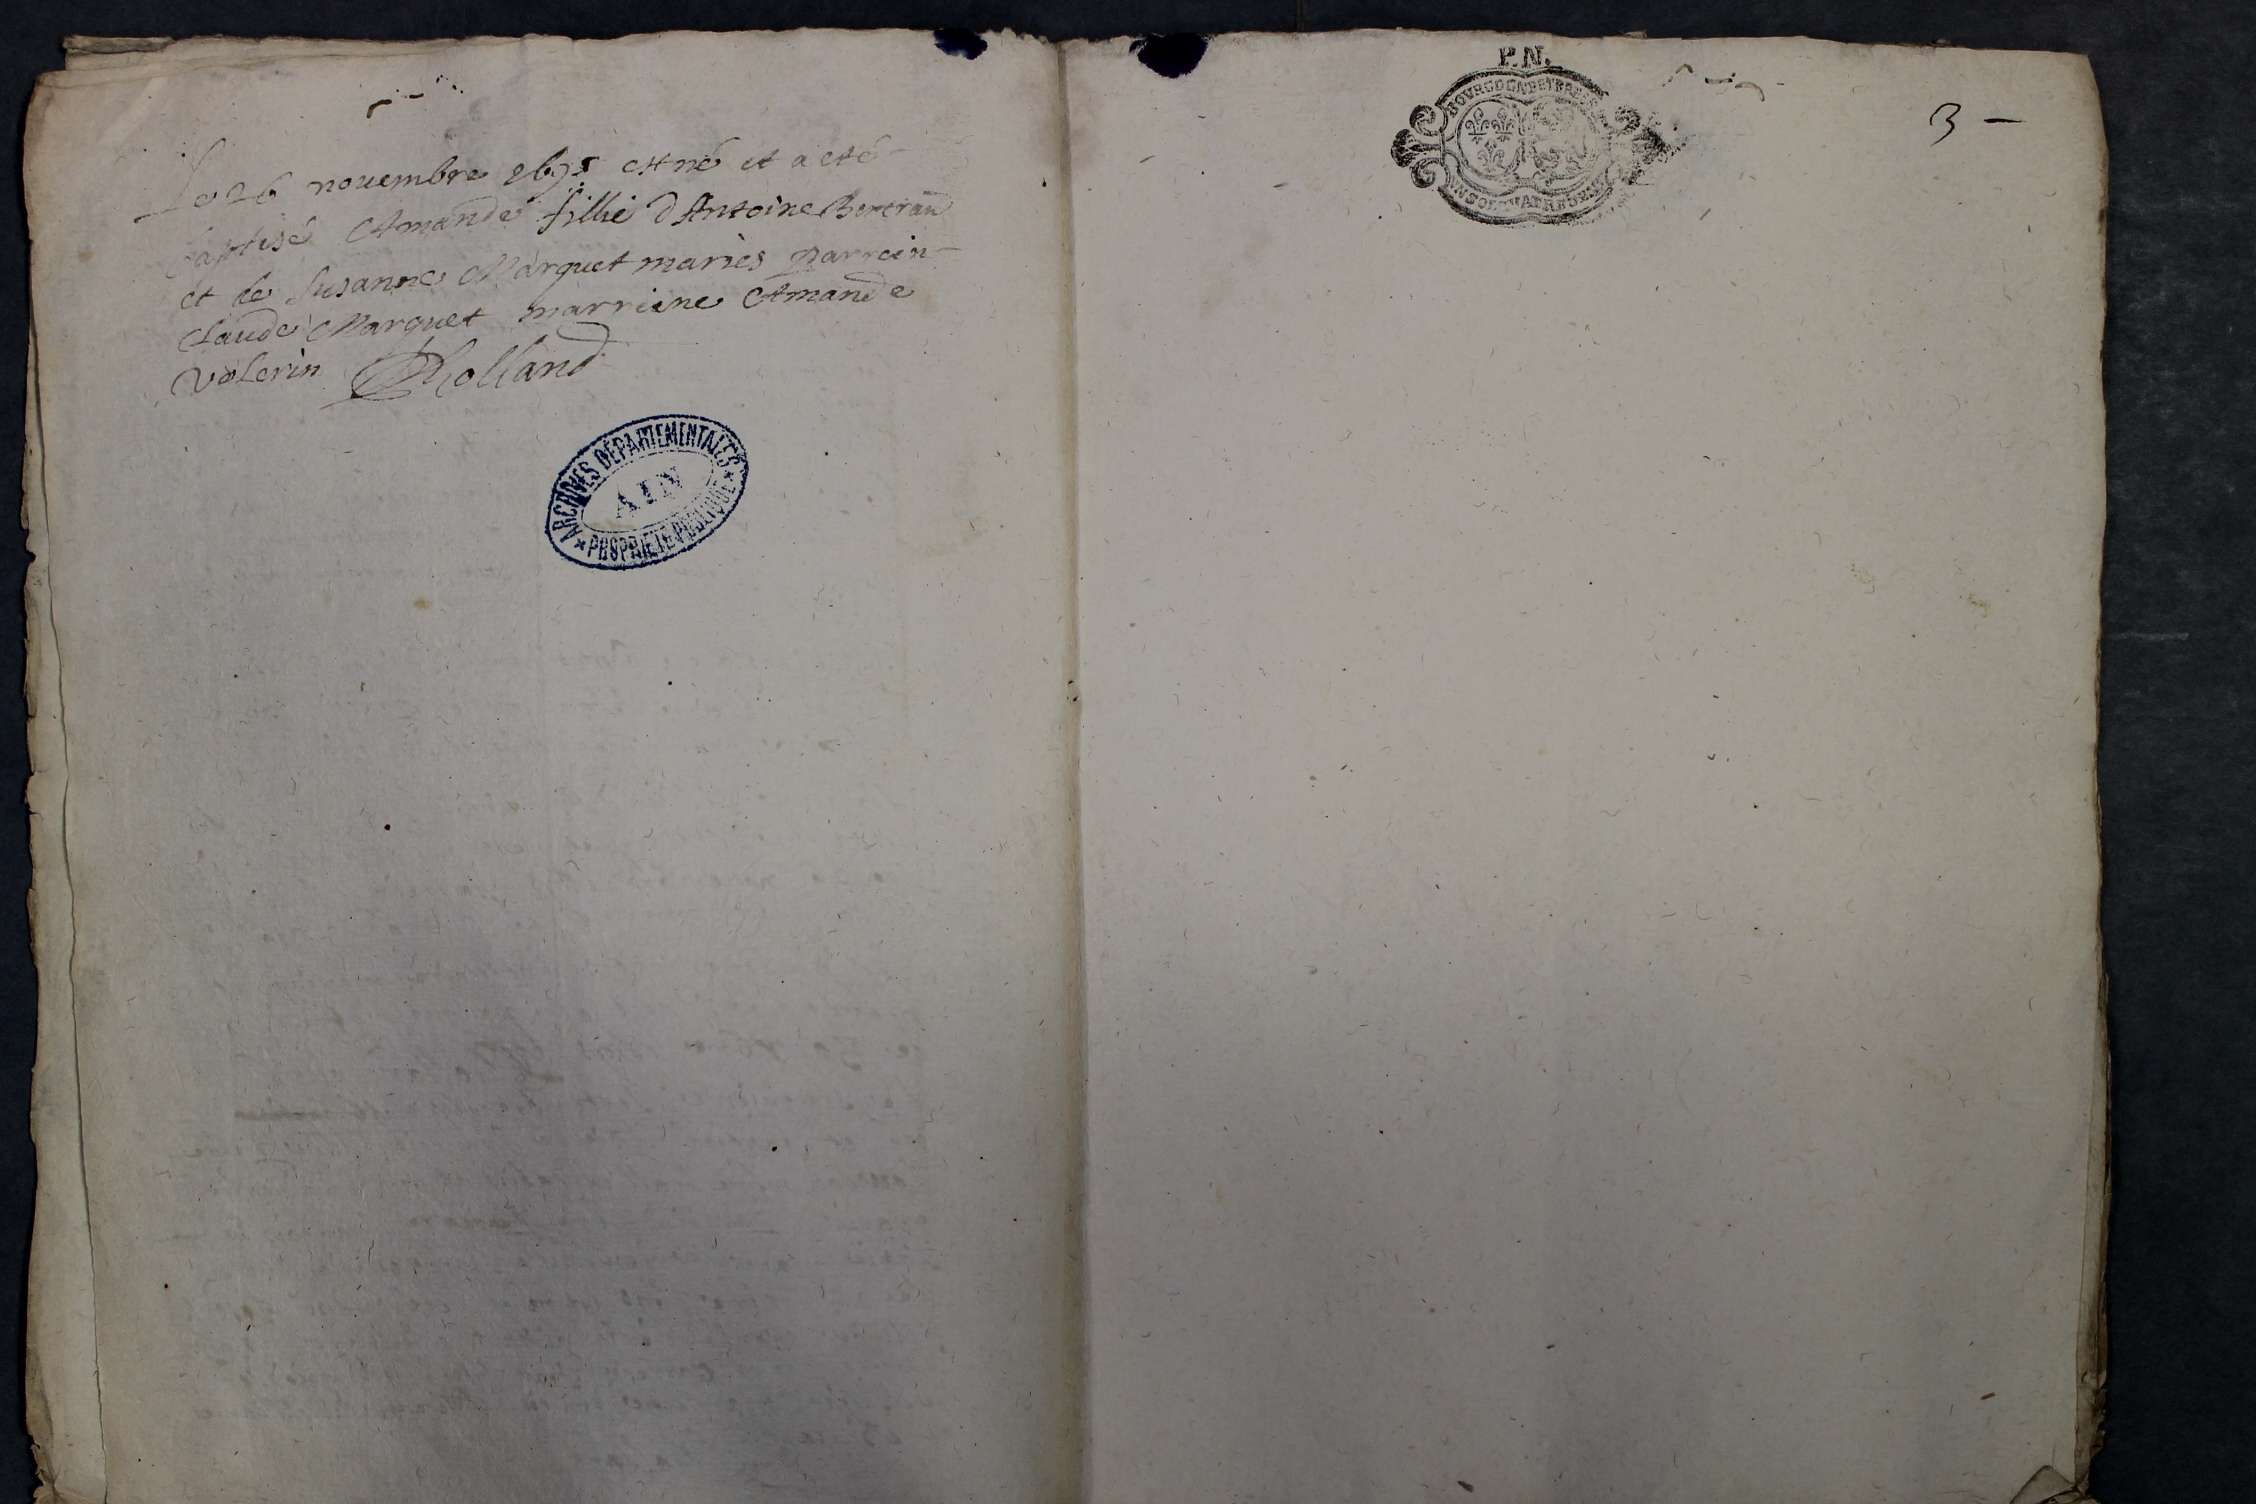 Le 26 novembre 1695 est né et a eté
baptisé Amande fillie d'Antoine Bertran
et de Susanne Marguet mariés parrein
claude Marguet marriene Amande
volerin Rholland
ARCHIVES DÉPARTEMENTALES
AIN
PROPRIETE PUBLIQUE
P.N.
BOURGOGNE ET BRESSE
UN SOL QUATRE DEN
3 -